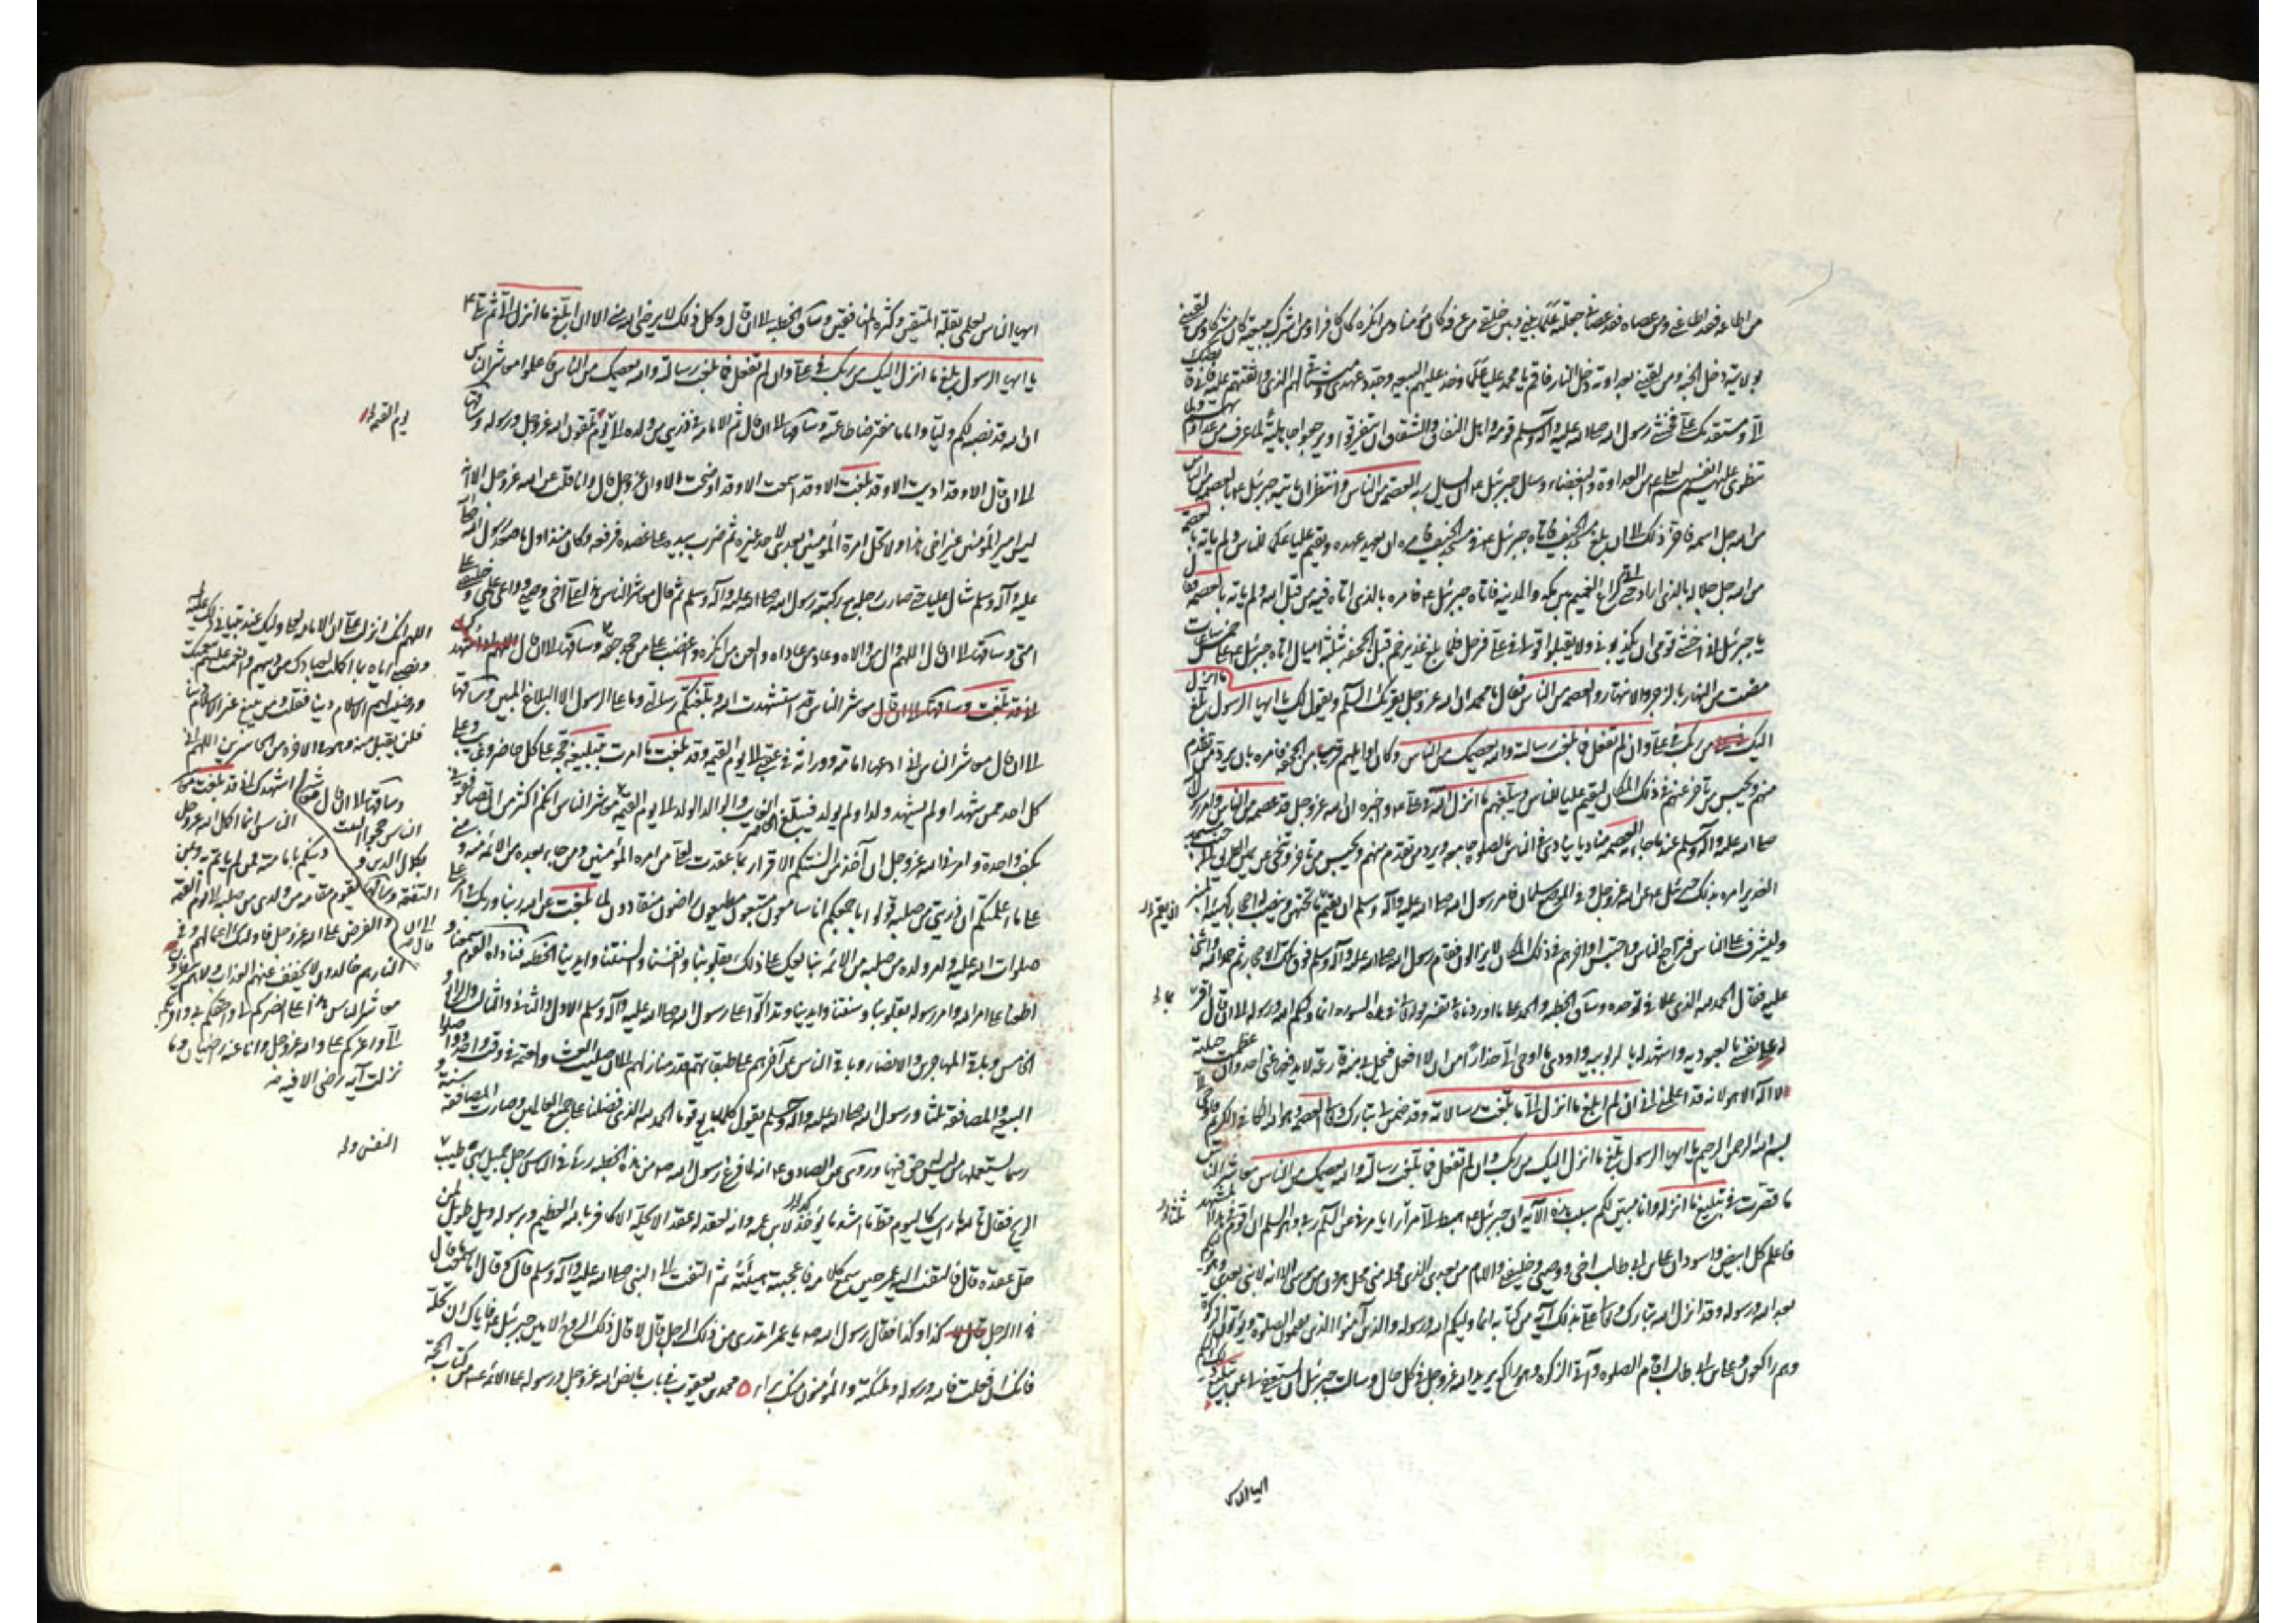 من اطاعه فقد اطاعني ومن عصاه فقد عصاني جعلته علما بيني وبين خلقي من عرفه كان مؤمنا ومن انكره كان كافرا ومن اشرك ببيعته كان مشركا ومن لقيني
بولايته دخل الجنة ومن لقيني بعداوته دخل النار فاقم يا محمد عليا علما وخذ عليهم البيعه وجدد عهدي وميثاقي لهم الذي واثقتهم عليه فاني قابضك
الي ومستقدمك علي فخشي رسول الله صلى الله عليه وآله وسلم قومه واهل النفاق والشقاق ان يتفرقوا ويرجعوا جاهلية لما عرف من عداوتهم ولما
تنطوي عليه انفسهم لعلي من العداوة والبغضاء وسال جبرئيل ان يسال ربه العصمة من الناس وانتظر ان ياتيه جبرئيل بالعصمه من الناس
من الله جل اسمه فاخر ذلك الى ان بلغ مسجد الخيف فاتاه جبرئيل في مسجد الخيف فامره ان يعهد عهده ويقيم عليا علما للناس ولم ياته بالعصمة
من الله جل جلاله بالذي اراد حتى اتى كراع الغميم بين مكه والمدينه فاتاه جبرئيل فامره بالذي اتاه فيه من قبل الله ولم ياته بالعصمة فقال
يا جبرئيل اني اخشى قومي ان يكذبوني ولا يقبلوا قولي في علي فرحل فلما بلغ غدير خم قبل الجحفه بثلثة اميال اتاه جبرئيل على خمس ساعات
مضت من النهار بالزجر والانتهار والعصمه من الناس فقال يا محمد ان الله عز وجل يقرئك السلم ويقول لك يا ايها الرسول بلغ ما انزل
اليك من ربك في علي وان لم تفعل فما بلغت رسالته والله يعصمك من الناس وكان اوايلهم قريبا من الجحفه فامره بان يرد من تقدم
منهم ويحبس من تاخر عنهم في ذلك المكان ليقيم عليا للناس ويبلغهم ما انزل الله في علي واخبره ان الله عز وجل قد عصمه من الناس وامر رسول الله
صلى الله عليه وآله وسلم عند ما جاءته العصمه مناديا ينادي في الناس بالصلوه جامعه ويرد من تقدم منهم ويحبس من تاخر وتنحى عن يمين الطريق الى جنب مسجد
الغدير امره بذلك جبرئيل عن الله عز وجل وفي الموضع سلمات فامر رسول الله صلى الله عليه وآله وسلم ان يقم ما تحتهن وينصب له احجار كهيئة المنبر
وليشرف على الناس فتراجع الناس واحتبس اواخرهم في ذلك المكان لا يزالون فقام رسول الله صلى الله عليه وآله وسلم فوق تلك الاحجار ثم حمد الله واثنى
عليه فقال الحمد لله الذي علا في توحده وساق الخطبه
له على نفسي بالعبوديه واشهد له بالربوبيه واودي ما اوحى الي حذرا من ان لا افعل فتحل بي منه قارعة لا يدفعها عني احد وان عظمت حيلته
لا اله الا هو لانه قد اعلمني اني ان لم ابلغ ما انزل الي فما بلغت رسالاته وقد ضمن لي تبارك وتعالى العصمه وهو الله الكافي الكريم فاوحى الي
بسم الله الرحمن الرحيم يا ايها الرسول بلغ ما انزل اليك من ربك وان لم تفعل فما بلغت رسالته والله يعصمك من الناس معاشر الناس
ما قصرت في تبليغ ما انزله وانا مبين لكم سبب هذه الآيه ان جبرئيل هبط الي مرارا يامرني عن السلم ربي وهو السلم ان اقوم في هذا المشهد
فاعلم كل ابيض واسود ان علي بن ابي طالب اخي ووصيي وخليفتي والامام من بعدي الذي محله مني محل هرون من موسى الا انه لا نبي بعدي وهو وليكم
بعد الله ورسوله وقد انزل الله تبارك وتعالى علي بذلك آية من كتابه انما وليكم الله ورسوله والذين آمنوا الذين يقيمون الصلوة ويؤتون الزكوة
وهم راكعون وعلي بن ابي طالب اقام الصلوه وآتى الزكوه وهو راكع يريد الله عز وجل في كل حال وسالت جبرئيل ان يستعفي لي عن تبليغ ذلك اليكم
ايها الناس
ايها الناس لعلمي بقلة المتقين وكثرة المنافقين وساق الخطبه الى ان قال وكل ذلك لا يرضى الله مني الا ان ابلغ ما انزل الي ثم تلا
يا ايها الرسول بلغ ما انزل اليك من ربك في علي وان لم تفعل فما بلغت رسالته والله يعصمك من الناس فاعلموا معاشر الناس
ان الله قد نصبه لكم وليا واماما مفترضا طاعته وساقها الى ان قال ثم الامامة في ذريتي من ولده الى يوم تلقون الله عز وجل ورسوله وساقها
يوم القيمه
الى ان قال الا وقد اديت الا وقد بلغت الا وقد اسمعت الا وقد اوضحت الا وان الله عز وجل قال وانا قلت عن الله عز وجل الا انه
ليس امير المؤمنين غير اخي هذا ولا تحل امرة المؤمنين بعدي لاحد غيره ثم ضرب بيده على عضده فرفعه وكان منذ اول ما صعد رسول الله صلى الله
عليه وآله وسلم شال عليا حتى صارت رجله مع ركبة رسول الله صلى الله عليه وآله وسلم ثم قال معاشر الناس هذا علي اخي ووصيي وواعي علمي وخليفتي على
امتي وساقها الى ان قال اللهم وال من والاه وعاد من عاداه والعن من انكره واغضب على من جحد حقه وساقها الى ان قال اللهم اني اشهدك
اني قد بلغت وساقها الى ان قال معاشر الناس قد استشهدت الله وبلغتكم رسالتي وما على الرسول الا البلاغ المبين وساقها
الى ان قال معاشر الناس اني ادعها امامة ووراثة في عقبي الى يوم القيمه وقد بلغت ما امرت بتبليغه حجة على كل حاضر وغايب وعلى
كل احد ممن شهد او لم يشهد ولد او لم يولد فليبلغ الحاضر الغايب والوالد الولد الى يوم القيمه معاشر الناس انكم اكثر من ان تصافقوني
بكف واحدة وامرني الله عز وجل ان آخذ من السنتكم الاقرار بما عقدت لعلي من امرة المؤمنين ومن جاء بعده من الائمه مني ومنه
على ما اعلمتكم ان ذريتي من صلبه فقولوا باجمعكم انا سامعون مطيعون راضون منقادون لما بلغت عن الله ربنا وربك في امر علي
صلوات الله عليه وامر ولده من صلبه من الائمه نبايعك على ذلك بقلوبنا وانفسنا والسنتنا وايدينا الخطبه فناداه القوم سمعنا و
اطعنا على امر الله وامر رسوله بقلوبنا والسنتنا وايدينا وتداكوا على رسول الله صلى الله عليه وآله وسلم الاول والثاني والثالث والرابع و
الخامس وباقي المهاجرين والانصار وباقي الناس عن آخرهم على طبقاتهم وقدر منازلهم الى ان صليت العشاء والعتمه في وقت واحد وواصلوا
البيعه والمصافقه ثلثا ورسول الله صلى الله عليه وآله وسلم يقول كلما بايع قوم الحمد لله الذي فضلنا على جميع العالمين وصارت المصافقه سنة و
رسما يستعملها من ليس له حق فيها وروي عن الصادق انه لما فرغ رسول الله من هذه الخطبه رئي في الناس رجل جميل بهي طيب
الريح فقال تالله ما رايت كاليوم قط ما اشد ما يؤكد لابن عمه وانه لعقد له عقدا لا يحله الا كافر بالله العظيم وبرسوله ويل طويل لمن
حل عقده قال فالتفت اليه عمر حين سمع كلامه فاعجبته هيئته ثم التفت الى النبي صلى الله عليه وآله وسلم قال وقال اما سمعت ما قال
هذا الرجل كذا وكذا فقال رسول الله يا عمر اتدري من ذلك الرجل قال لا قال ذلك الروح الامين جبرئيل فاياك ان تحله
فانك ان فعلت فالله ورسوله وملئكته والمؤمنون منك براء محمد بن يعقوب في باب ما نص الله عز وجل ورسوله على الائمه من كتاب الحجة
اللهم انك انزلت علي ان الامامة لعلي وليك عند تبياني ذلك عليهم
ونصبي اياه بما اكملت لعبادك من دينهم واتممت عليهم نعمتك
ورضيت لهم الاسلام دينا فقلت ومن يبتغ غير الاسلام دينا
فلن يقبل منه وهو في الآخرة من الخاسرين اللهم اني
اشهدك اني قد بلغت معاشر
الناس انما اكمل الله عز وجل
دينكم بامامته فمن لم ياتم به وبمن
يقوم مقامه من ولدي من صلبه الى يوم القيمة
والعرض على الله عز وجل فاولئك حبطت اعمالهم وفي
النار هم خالدون لا يخفف عنهم العذاب ولا هم ينظرون
معاشر الناس هذا علي انصركم لي واحقكم بي واقربكم
الي واعزكم علي والله عز وجل وانا عنه راضيان وما
نزلت آية رضى الا فيه
وساقها الى ان قال معاشر